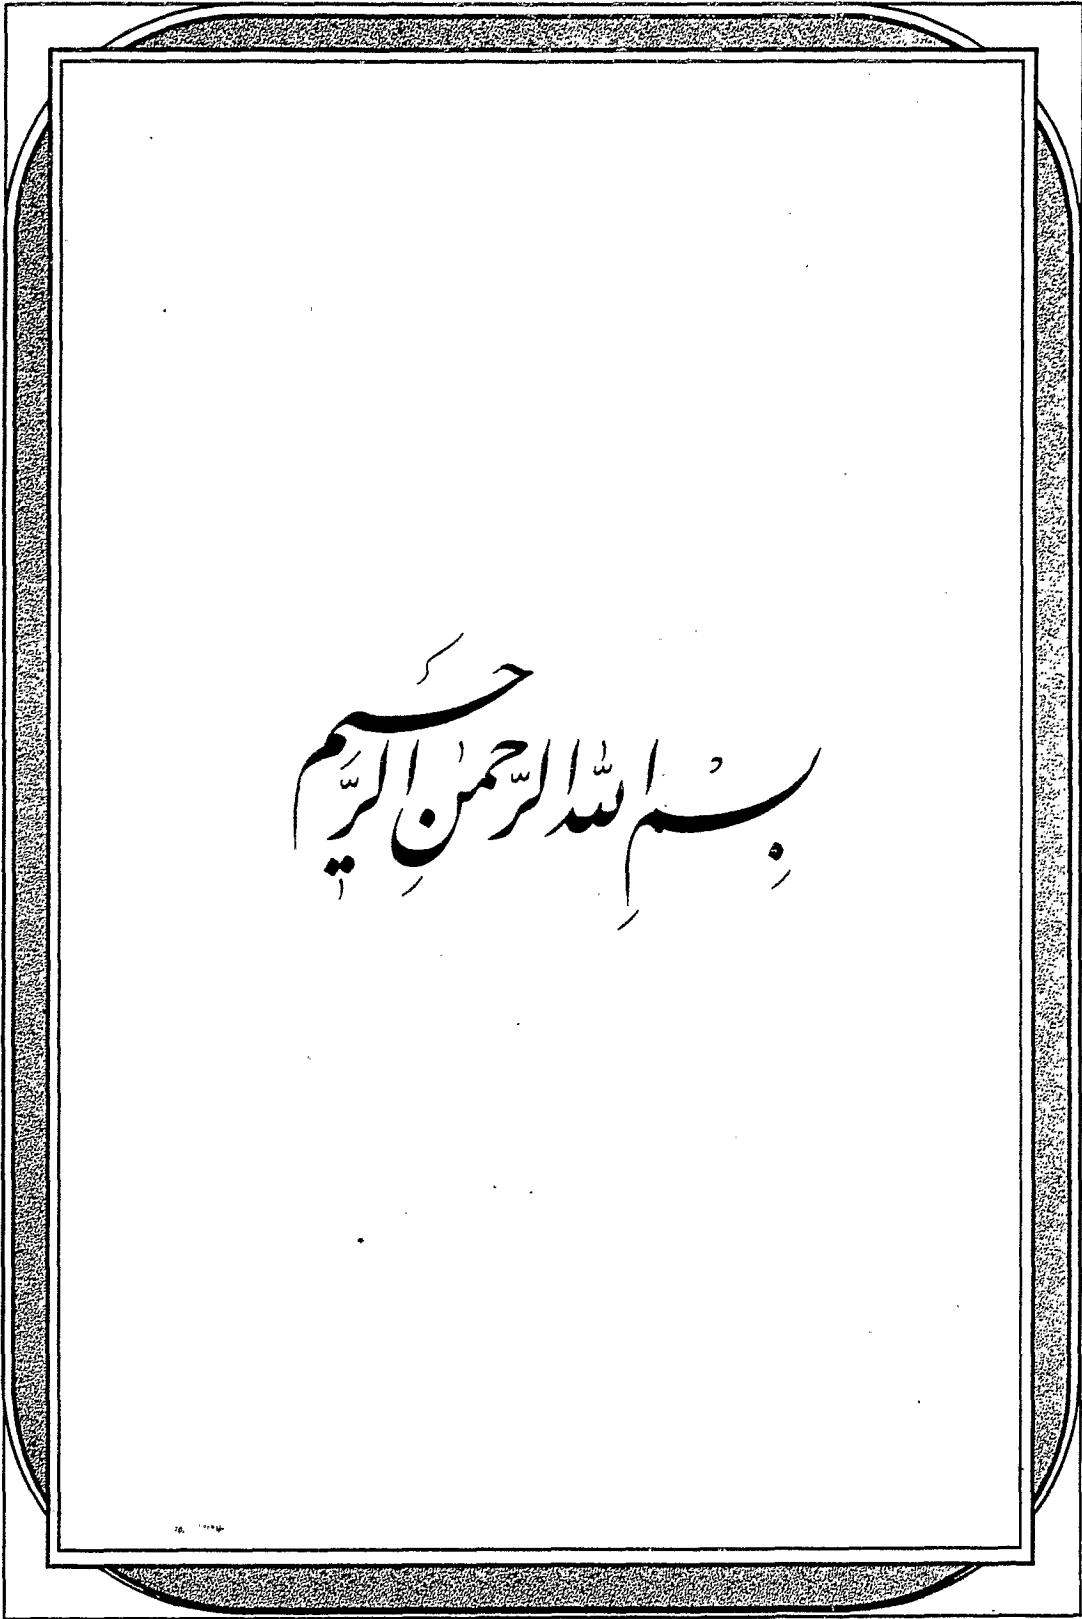 بِسْمِ اللّٰهِ الرَّحْمٰنِ الرَّحيَم